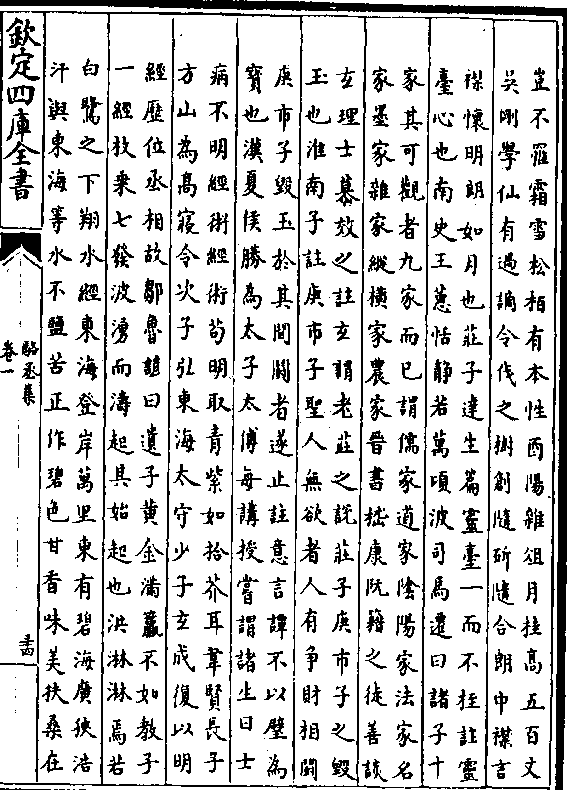 豈不罹霜雪松栢有本性酉陽雜俎月桂髙五百丈
吳剛學仙有過謫令伐之樹創隨斫隨合朗巾襟言
襟懷明朗如月也莊子達生篇靈臺一而不桎註靈
臺心也南史王蒽恬靜若萬頃波司馬遷曰諸子十
家其可觀者九家而已謂儒家道家陰陽家法家名
家墨家雜家縱横家農家晉書嵇康阮籍之徒善談
𤣥理士慕效之註𤣥謂老莊之說莊子庚市子之毀
玉也淮南子註庚市子聖人無欲者人有爭財相鬭
庚市子毀玉於其間鬭者遂止註意言譚不以璧為
寳也漢夏侯勝為太子太傅每講授嘗謂諸生曰士
病不明經術經術茍明取青紫如拾芥耳韋賢長子
方山為髙寢令次子弘東海太守少子𤣥成復以明
經歷位丞相故鄒魯諺曰遺子黄金滿籯不如教子
一經枚乗七發波湧而濤起其始起也洪淋淋焉若
白鷺之下翔水經東海登岸萬里東有碧海廣狹浩
汗與東海等水不鹽苦正作碧色甘香味美扶桑在
欽定四庫全書
駱丞集
卷一